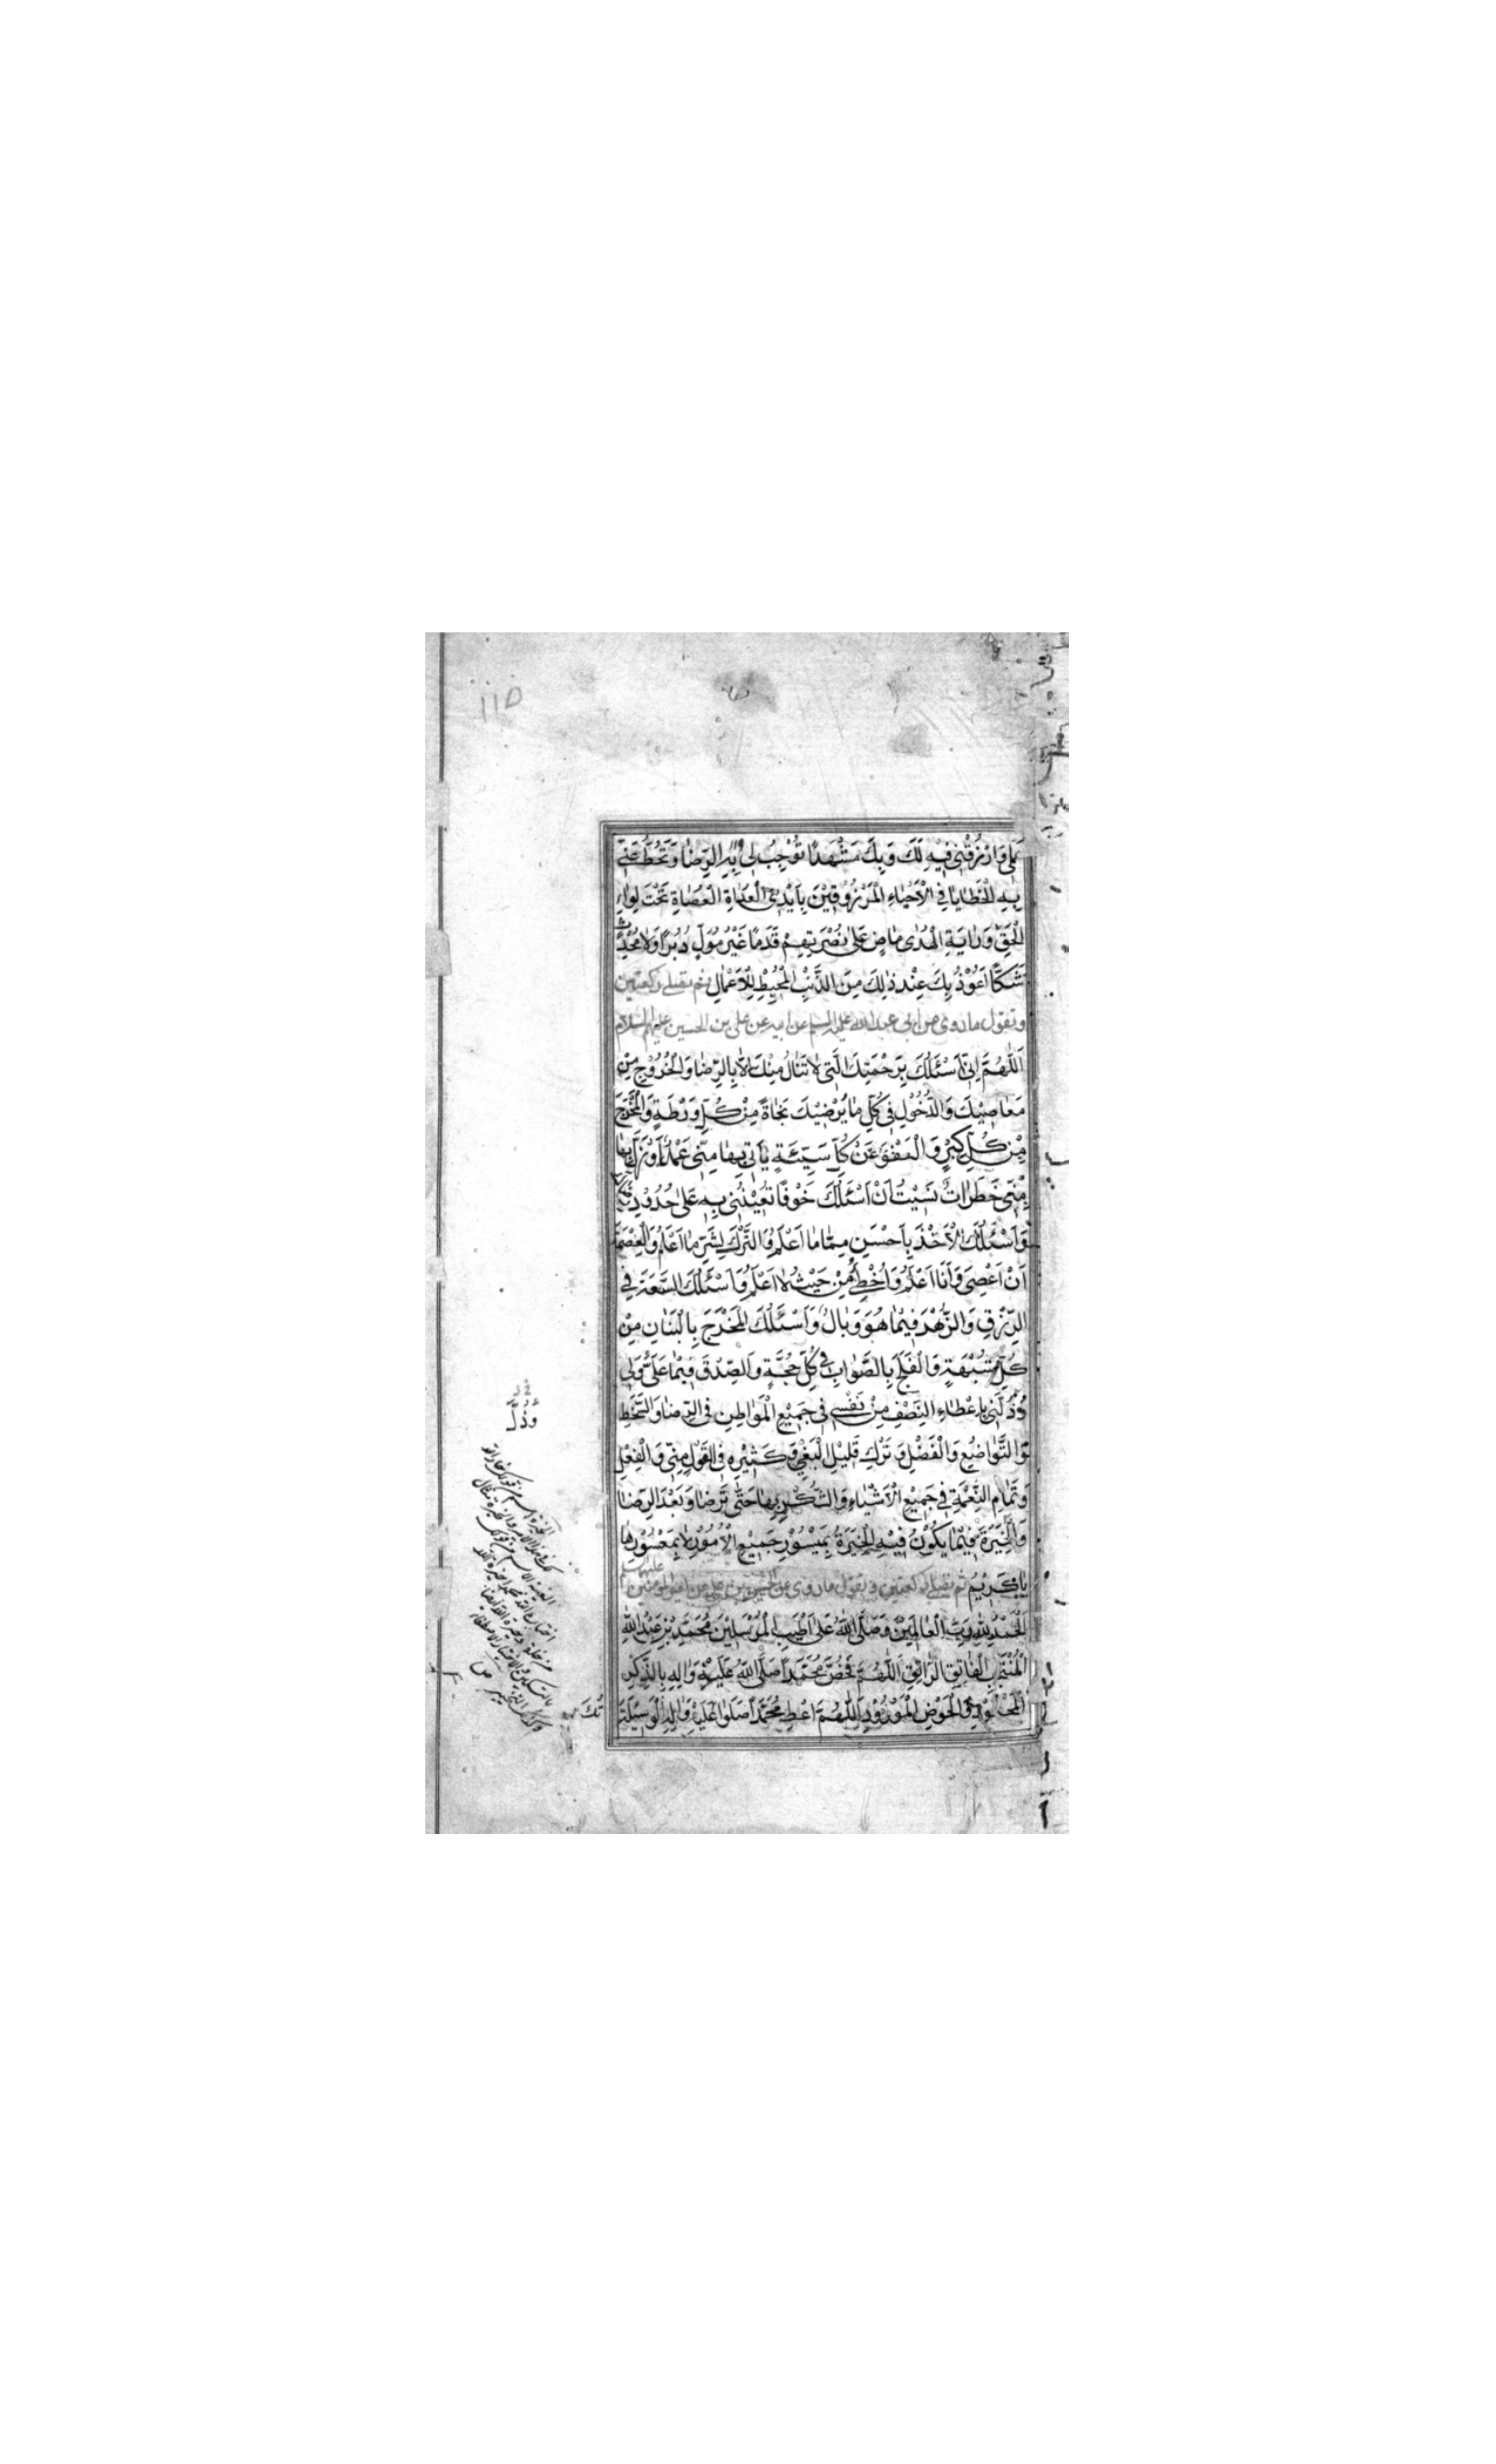 عَمَلِي وَارْزُقْنِي فِيهِ لَكَ وَبِكَ مَشْهَدًا تُوجِبُ لِي بِهِ الرِّضَا وَتَحُطُّ عَنِّي
بِهِ الْخَطَايَا فِي الْأَحْيَاءِ الْمَرْزُوقِينَ بِأَيْدِي الْعُدَاةِ الْعُصَاةِ تَحْتَ لِوَاءِ
الْحَقِّ وَرَايَةِ الْهُدَى مَاضٍ عَلَى نُصْرَتِهِمْ قَدَمًا غَيْرَ مُوَلٍّ دُبُرًا وَلَا مُحْدِثٍ
شَكًّا أَعُوذُ بِكَ عِنْدَ ذَلِكَ مِنَ الذَّنْبِ الْمُحِيطِ لِلْأَعْمَالِ ثم تصلي ركعتين
وتقول ما روى عن ابى عبدالله عليه السلام عن ابيه عن على بن الحسين عليهم السلام
اَللّٰهُمَّ اِنِّي اَسْئَلُكَ بِرَحْمَتِكَ الَّتِي لَا تَنَالُ مِنْكَ اِلَّا بِالرِّضَا وَالْخُرُوجِ مِنْ
مَعَاصِيكَ وَالدُّخُولِ فِي كُلِّ مَا يُرْضِيكَ نَجَاةً مِنْ كُلِّ وَرْطَةٍ وَالْمَخْرَجَ
مِنْ كُلِّ كِبْرٍ وَالْعَفْوَ عَنْ كُلِّ سَيِّئَةٍ يَأْتِي بِهَا مِنِّي عَمْدٌ اَوْ زَلَّ بِهَا
مِنِّي خَطَرَاتٌ نَسِيتُ اَنْ اَسْئَلَكَ خَوْفًا تُعِينُنِي بِهِ عَلَى حُدُودِ رِضَاكَ
وَاَسْئَلُكَ الْاَخْذَ بِاَحْسَنِ مَا اَعْلَمُ وَالتَّرْكَ لِشَرِّ مَا اَعْلَمُ وَالْعِصْمَةَ
اَنْ اَعْصِيَ وَاَنَا اَعْلَمُ وَاُخْطِئُ مِنْ حَيْثُ لَا اَعْلَمُ وَاَسْئَلُكَ السَّعَةَ فِي
الرِّزْقِ وَالزُّهْدَ فِيمَا هُوَ وَبَالٌ وَاَسْئَلُكَ الْمَخْرَجَ بِالْبَيَانِ مِنْ
كُلِّ شُبْهَةٍ وَالْفَلَجَ بِالصَّوَابِ فِي كُلِّ حُجَّةٍ وَالصِّدْقَ فِيمَا عَلَيَّ وَلِي
وَذَلِّلْنِي بِاِعْطَاءِ النِّصْفِ مِنْ نَفْسِي فِي جَمِيعِ الْمَوَاطِنِ فِي الرِّضَا وَالسَّخَطِ
وَالتَّوَاضُعِ وَالْفَضْلِ وَتَرْكِ قَلِيلِ الْبَغْيِ وَكَثِيرِهِ فِي الْقَوْلِ مِنِّي وَالْفِعْلِ
وَتَمَامِ النِّعْمَةِ فِي جَمِيعِ الْاَشْيَاءِ وَالشُّكْرِ بِهَا حَتَّى تَرْضَا وَبَعْدَ الرِّضَا
وَالْخِيَرَةَ فِيمَا يَكُونُ فِيهِ الْخِيَرَةُ بِمَيْسُورِ جَمِيعِ الْاُمُورِ لَا بِمَعْسُورِهَا
يَا كَرِيمُ ثم تصلى ركعتين وتقول ما روى عن الحسين بن على عن امير المؤمنين عليهما السلام
اَلْحَمْدُ لِلّٰهِ رَبِّ الْعَالَمِينَ وَصَلَّى اللّٰهُ عَلَى اَطْيَبِ الْمُرْسَلِينَ مُحَمَّدِ بْنِ عَبْدِ اللّٰهِ
الْمُنْتَجَبِ الْفَاتِقِ الرَّاتِقِ اَللّٰهُمَّ فَخُصَّ مُحَمَّدًا صَلَّى اللّٰهُ عَلَيْهِ وَاٰلِهِ بِالذِّكْرِ
الْمَحْمُودِ وَالْحَوْضِ الْمَوْرُودِ اَللّٰهُمَّ اعْطِ مُحَمَّدًا صَلَوَاتُكَ عَلَيْهِ وَاٰلِهِ الْوَسِيلَةَ
وَذُلَّ
تُكَ
١١٥